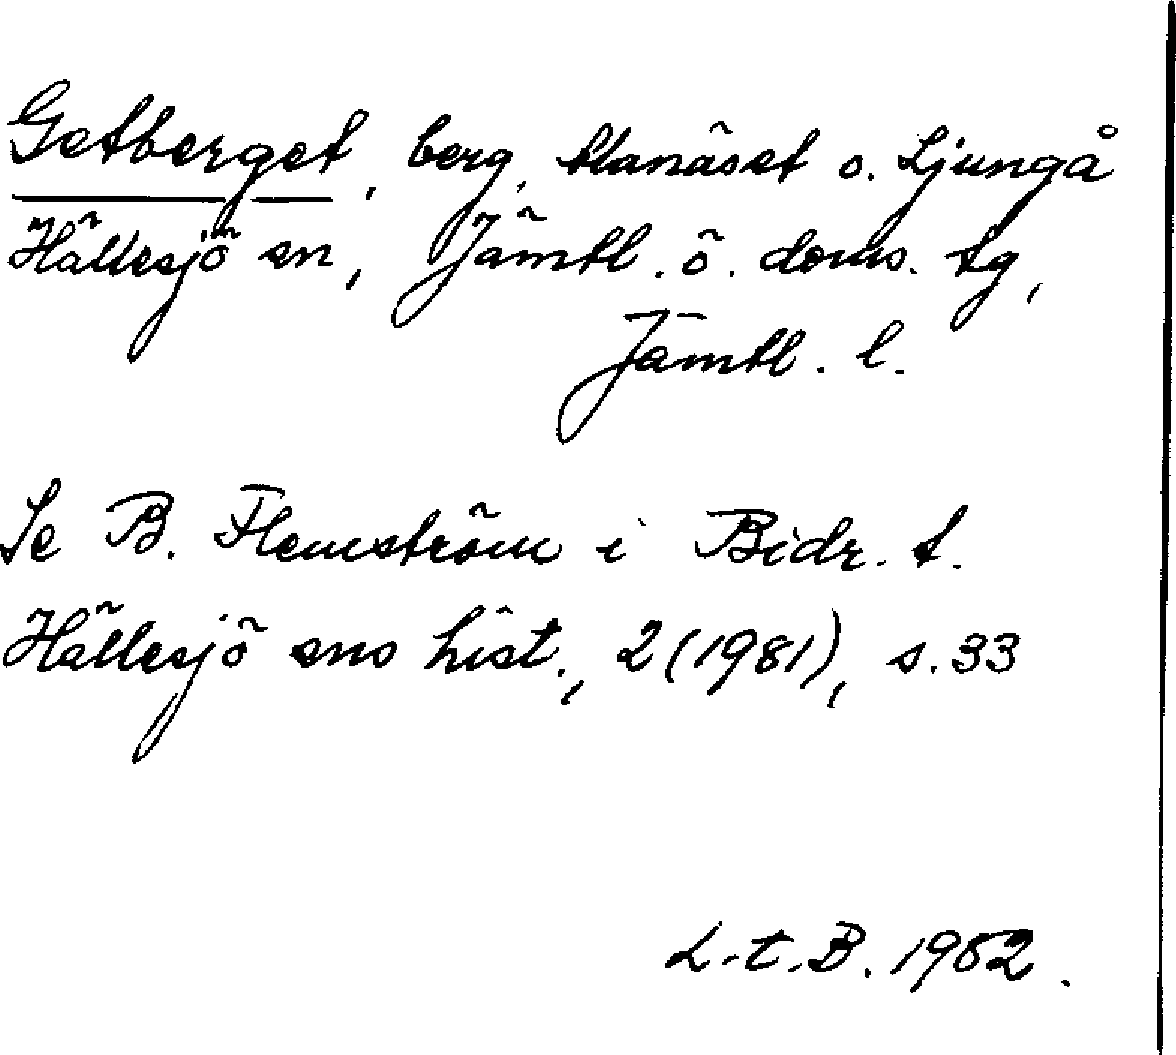 Getberget, berg, Manåset o. Ljungå
Hällesjö sn, Jämtl. ö. doms. tg,
Jämtl. l.
Se B. Flemström i Bidr. t.
Hällesjö sns hist., 2 (1981), s. 33
L.t.B. 1982.